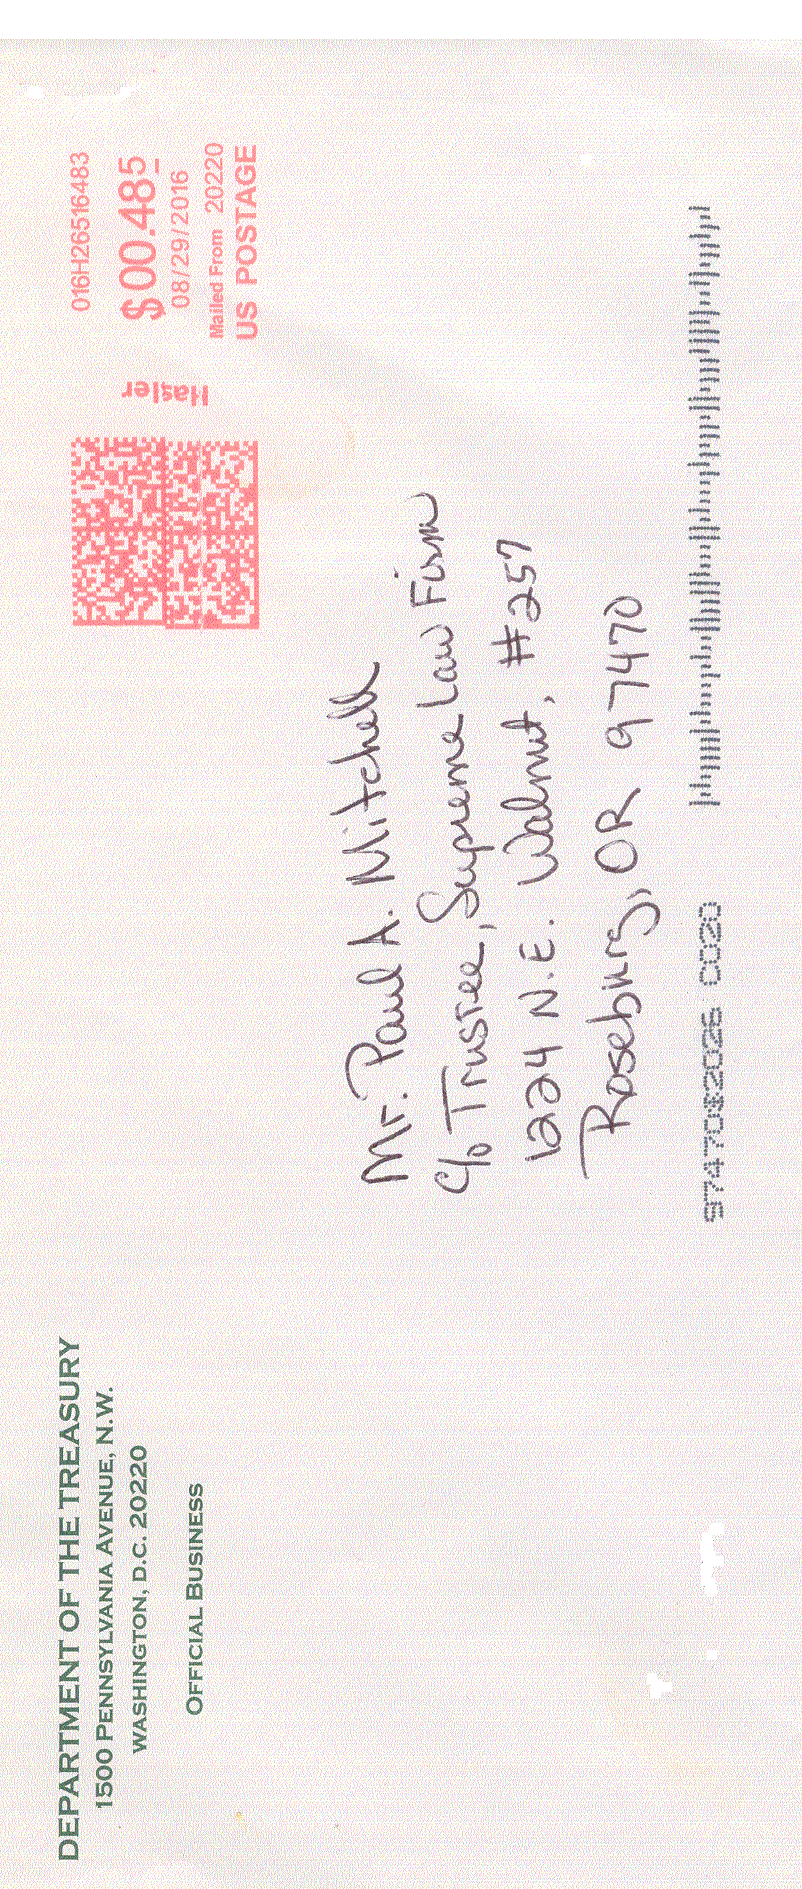 DEPARTMENT OF THE TREASURY
1500 PENNSYLVANIA AVENUE, N.W.
WASHINGTON, D.C. 20220
OFFICIAL BUSINESS
Hasler
016H26516483
$00.485
08/29/2016
Mailed From 20220
US POSTAGE
Mr. Paul A. Mitchell
c/o Trustee, Supreme Law Firm
1224 N.E. Walnut, #257
Roseburg, OR 97470
97470$2026 C020